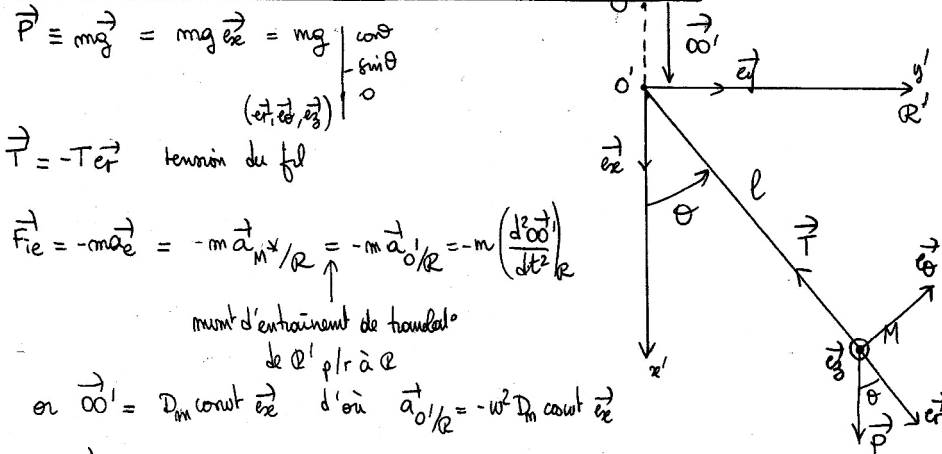 P⃗ ≡ mg⃗ = mg e⃗x = mg | cosθ
-sinθ
0
(e⃗r, e⃗θ, e⃗z)
T⃗ = -T e⃗r tension du fil
F⃗ie = -m a⃗e = -m a⃗M*/R = -m a⃗O'/R = -m (d²OO⃗'/dt²)R
↑
mvmt d'entraînement de translat°
de R' p/r à R
or OO⃗' = Dm cosωt e⃗x d'où a⃗O'/R = -ω² Dm cosωt e⃗x
OO⃗'
O'
e⃗y
y'
R'
e⃗x
θ
l
T⃗
x'
e⃗θ
M
e⃗z
θ
P⃗
e⃗r